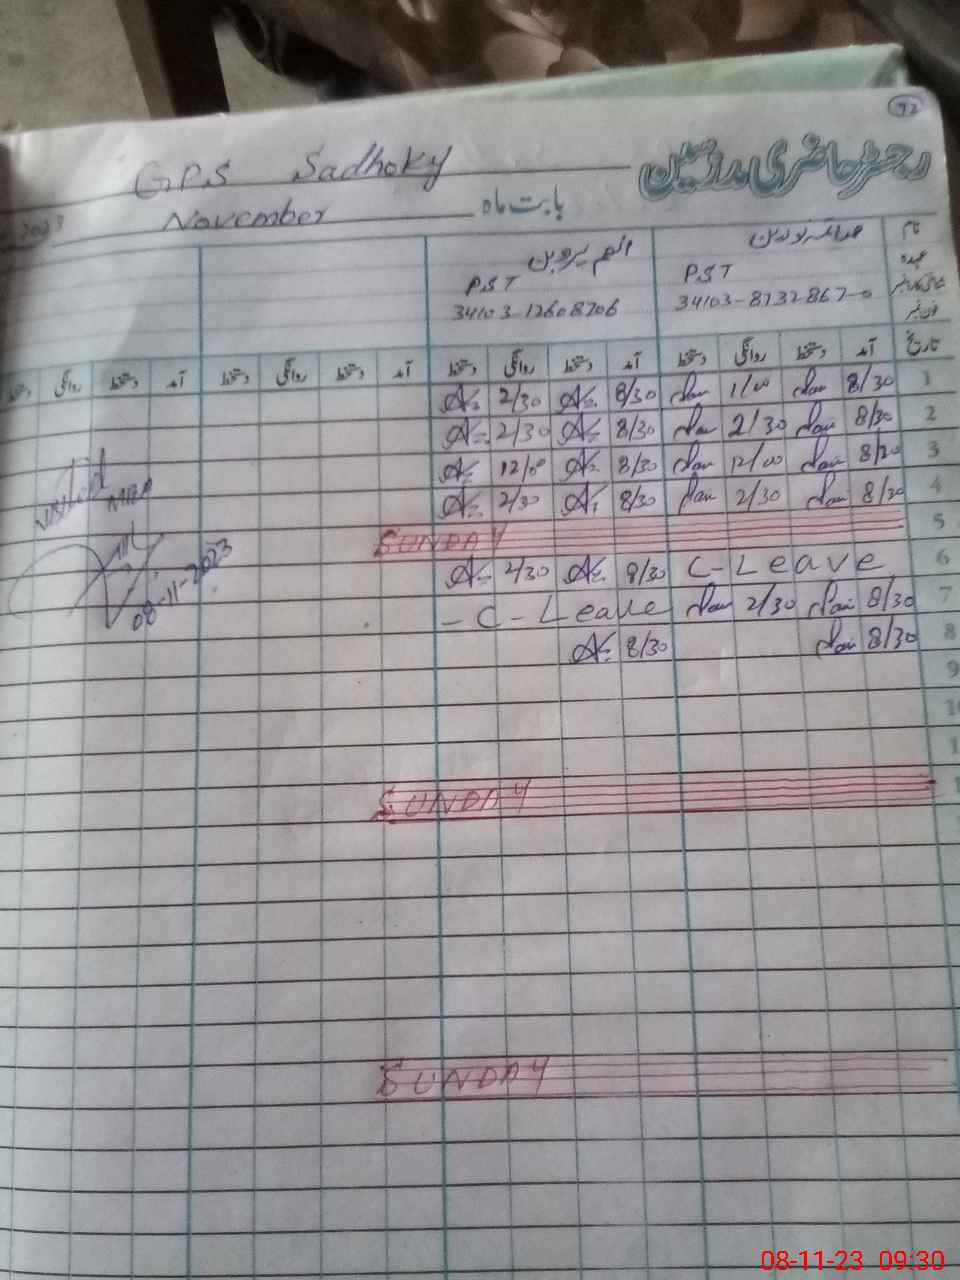 92
رجسٹر حاضری مدرسین
GPS Sadhoky
بابت ماہ November 2023
نام
عہدہ
انعم پروین
PST PST
34103-8732867-0 34103-12608706
تاریخ آمد دستخط روانگی دستخط آمد دستخط روانگی دستخط آمد دستخط روانگی دستخط آمد دستخط روانگی دستخط
1 8/30 1/00 8/30 2/30
2 8/30 2/30 8/30 2/30
3 8/30 12/00 8/30 12/0
4 8/30 2/30 8/30 2/30
5 SUNDAY
6 C-Leave 8/30 2/30
7 8/30 2/30 -C-Leave
8 8/30 8/30
9
10
SUNDAY
SUNDAY
Visited
MEA
08-11-2023
08-11-23 09:30